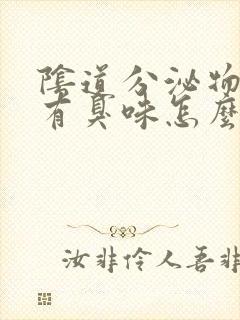 陰道分泌物
有臭味怎麼
汝非伶人吾非